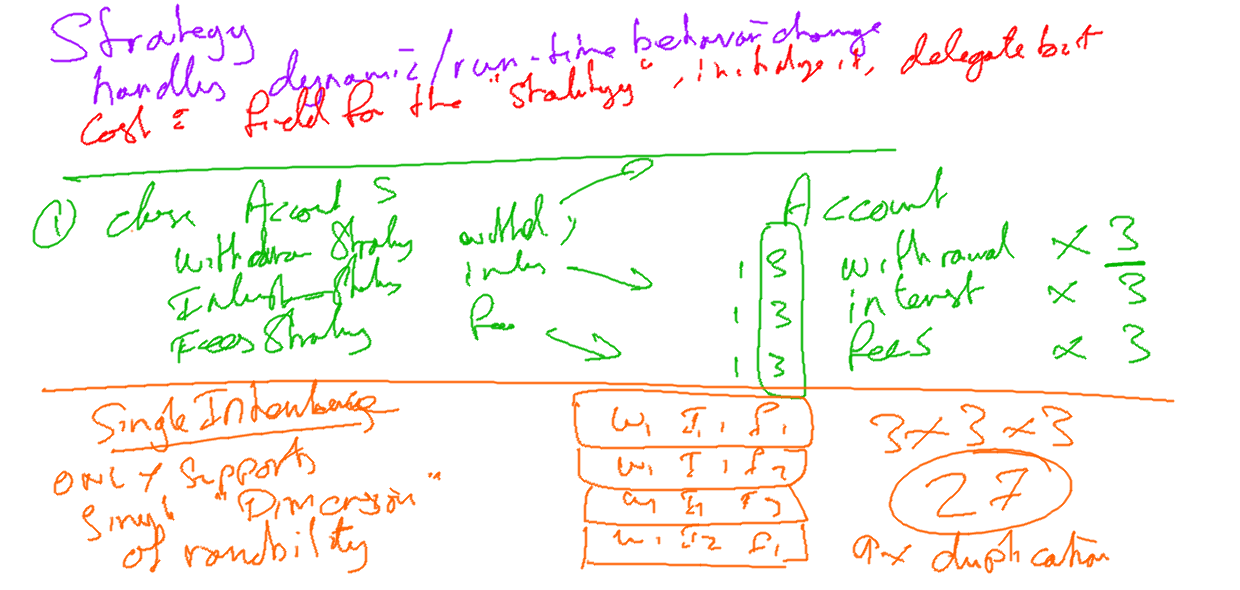 Strategy
handles dynamic/run-time behavior change
Cost = field for the "strategy", initialize it, delegate but
① class Account S
Withdraw Strategy
Interest Strategy
Fees Strategy
withd
fee
Account
1 3 withrawal x 3
1 3 interest x 3
1 3 fees x 3
Single Inheritance
ONLY supports
single "Dimension"
of variability
W1 I1 f1
W1 I1 f2
W1 I1 f3
W1 I2 f1
3 x 3 x 3
27
9x duplication